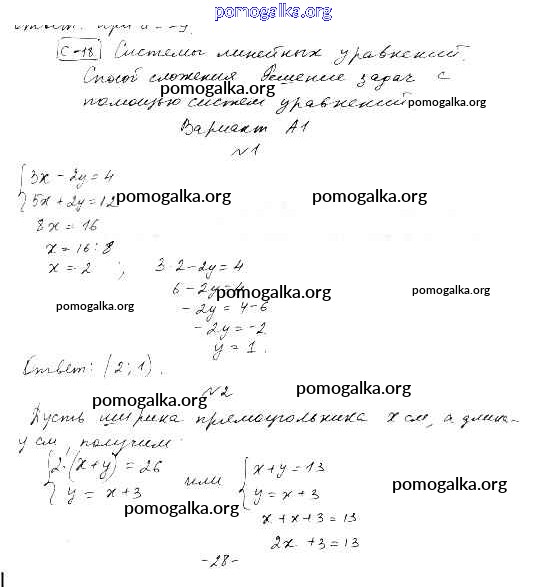 pomogalka.org
С-18 Системы линейных уравнений.
Способ сложения Решение задач с
pomogalka.org
помощью систем уравнений pomogalka.org
Вариант А1
№1
3x - 2y = 4
5x + 2y = 12 pomogalka.org pomogalka.org
8x = 16
x = 16 : 8
x = 2 ; 3·2 - 2y = 4
6 - 2y = 4 pomogalka.org pomogalka.org
pomogalka.org - 2y = 4 - 6
- 2y = -2
y = 1.
Ответ: (2; 1).
№2 pomogalka.org
pomogalka.org
Пусть ширина прямоугольника x см, а длина-
y см, получим:
2·(x+y) = 26 или x + y = 13
y = x + 3 y = x + 3 pomogalka.org
pomogalka.org x + x + 3 = 13
2x + 3 = 13
-28-